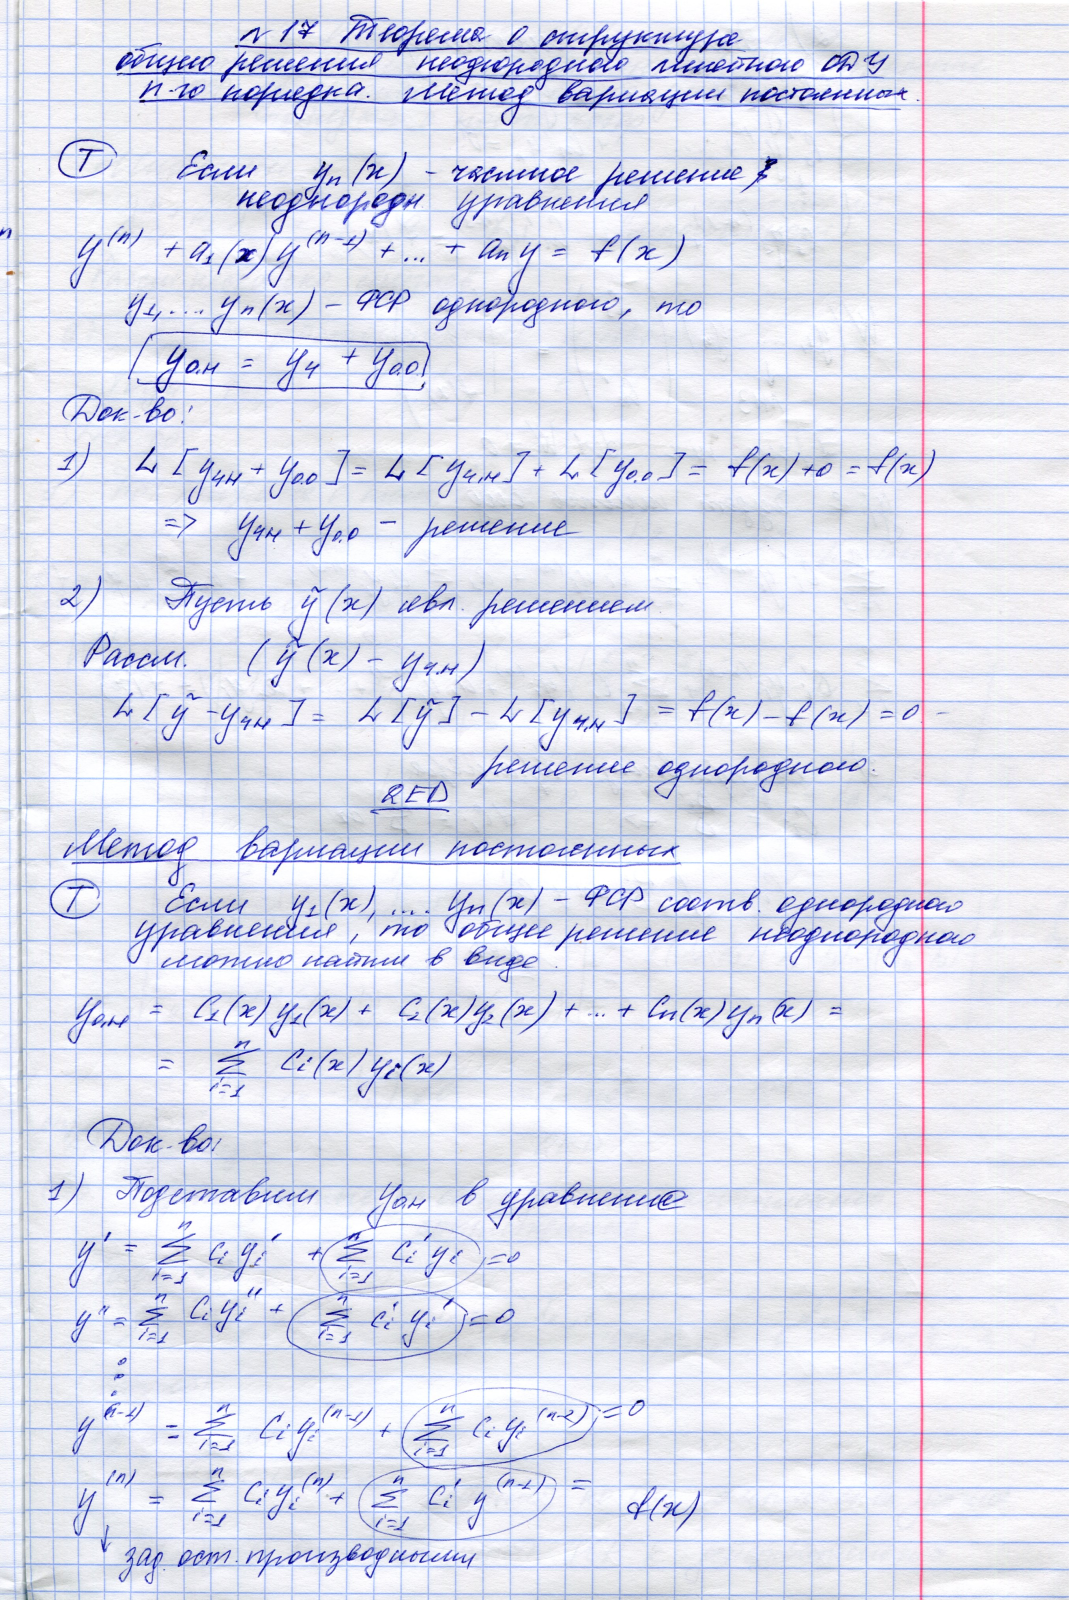 №17 Теорема о структуре
общего решения неоднородного линейного ОДУ
n-го порядка. Метод вариации постоянных.
(T) Если yп(x) – частное решение
неоднородн уравнения
y^(n) + a₁(x)y^(n-1) + ... + aₙy = f(x)
y₁,.... yₙ(x) – ФСР однородного, то
yо.н = yч + yо.о
Док-во:
1) L[yчн + yо.о] = L[yч.н] + L[yо.о] = f(x)+0 = f(x)
=> yчн + yо.о – решение
2) Пусть ỹ(x) явл. решением
Рассм. (ỹ(x) – yч.н)
L[ỹ – yчн] = L[ỹ] – L[yч.н] = f(x) – f(x) = 0 –
решение однородного.
QED
Метод вариации постоянных
(T) Если y₁(x), .... yₙ(x) – ФСР соотв. однородного
уравнения, то общее решение неоднородного
можно найти в виде
yо.н = C₁(x)y₁(x) + C₂(x)y₂(x) + ... + Cₙ(x)yₙ(x) =
= ∑ⁿᵢ₌₁ Cᵢ(x) yᵢ(x)
Док-во:
1) Подставим yон в уравнение
y' = ∑ⁿᵢ₌₁ Cᵢ yᵢ' + ∑ⁿᵢ₌₁ Cᵢ' yᵢ = 0
y'' = ∑ⁿᵢ₌₁ Cᵢ yᵢ'' + ∑ⁿᵢ₌₁ Cᵢ' yᵢ' = 0
⋮
y^(n-1) = ∑ⁿᵢ₌₁ Cᵢ yᵢ^(n-1) + ∑ⁿᵢ₌₁ Cᵢ yᵢ^(n-2) = 0
y^(n) = ∑ⁿᵢ₌₁ Cᵢ yᵢ^(n) + ∑ⁿᵢ₌₁ Cᵢ' y^(n-1) = f(x)
↓
зад. ост. производными